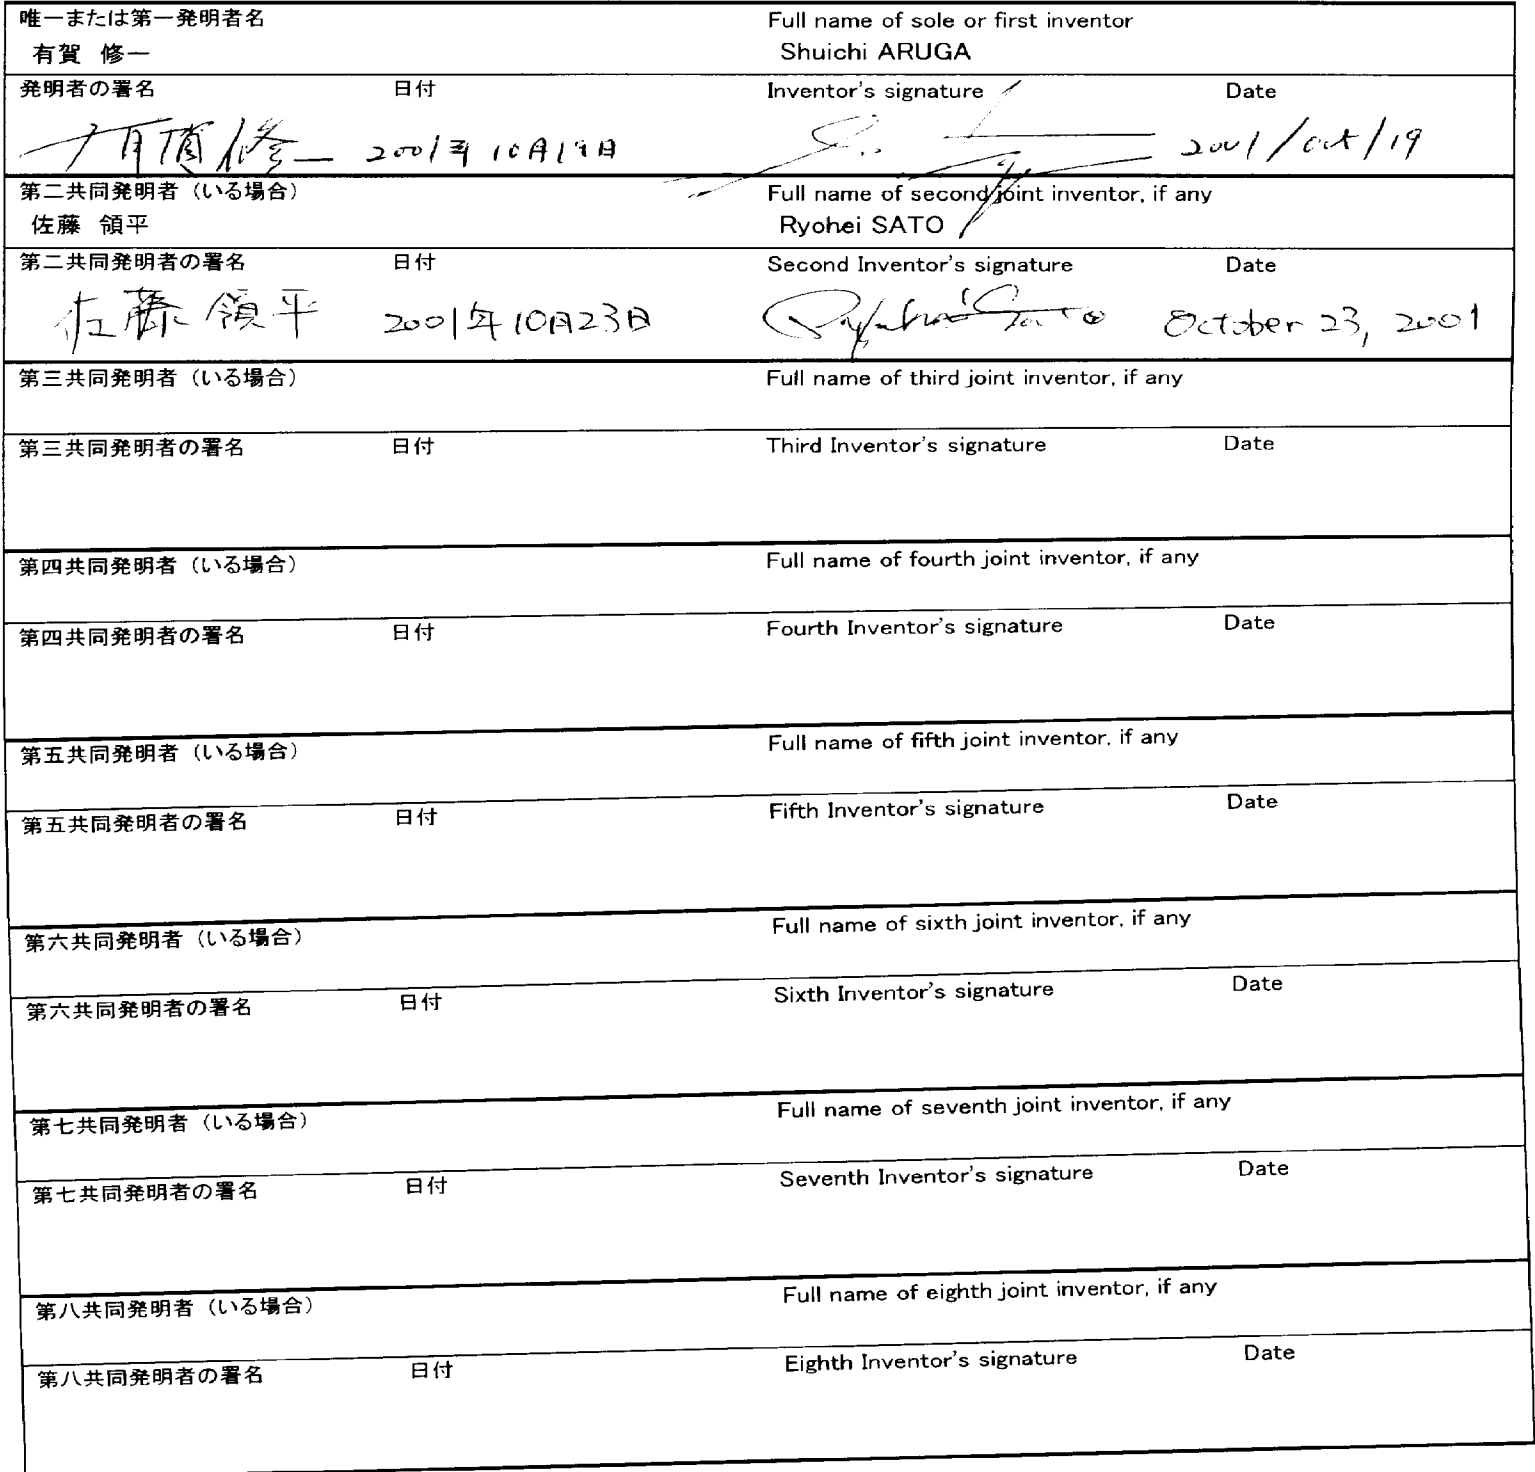 唯一または第一発明者名 Full name of sole or first inventor
有賀 修一 Shuichi ARUGA
発明者の署名 日付 Inventor's signature Date
有賀修一 2001年10月19日 2001/Oct/19
第二共同発明者（いる場合） Full name of second joint inventor, if any
佐藤 領平 Ryohei SATO
第二共同発明者の署名 日付 Second Inventor's signature Date
佐藤 領平 2001年10月23日 Ryohei Sato October 23, 2001
第三共同発明者（いる場合） Full name of third joint inventor, if any
第三共同発明者の署名 日付 Third Inventor's signature Date
第四共同発明者（いる場合） Full name of fourth joint inventor, if any
第四共同発明者の署名 日付 Fourth Inventor's signature Date
第五共同発明者（いる場合） Full name of fifth joint inventor, if any
第五共同発明者の署名 日付 Fifth Inventor's signature Date
第六共同発明者（いる場合） Full name of sixth joint inventor, if any
第六共同発明者の署名 日付 Sixth Inventor's signature Date
第七共同発明者（いる場合） Full name of seventh joint inventor, if any
第七共同発明者の署名 日付 Seventh Inventor's signature Date
第八共同発明者（いる場合） Full name of eighth joint inventor, if any
第八共同発明者の署名 日付 Eighth Inventor's signature Date